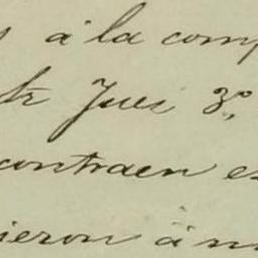 á la comp
Jues 3º,
contraen es
ieron á m